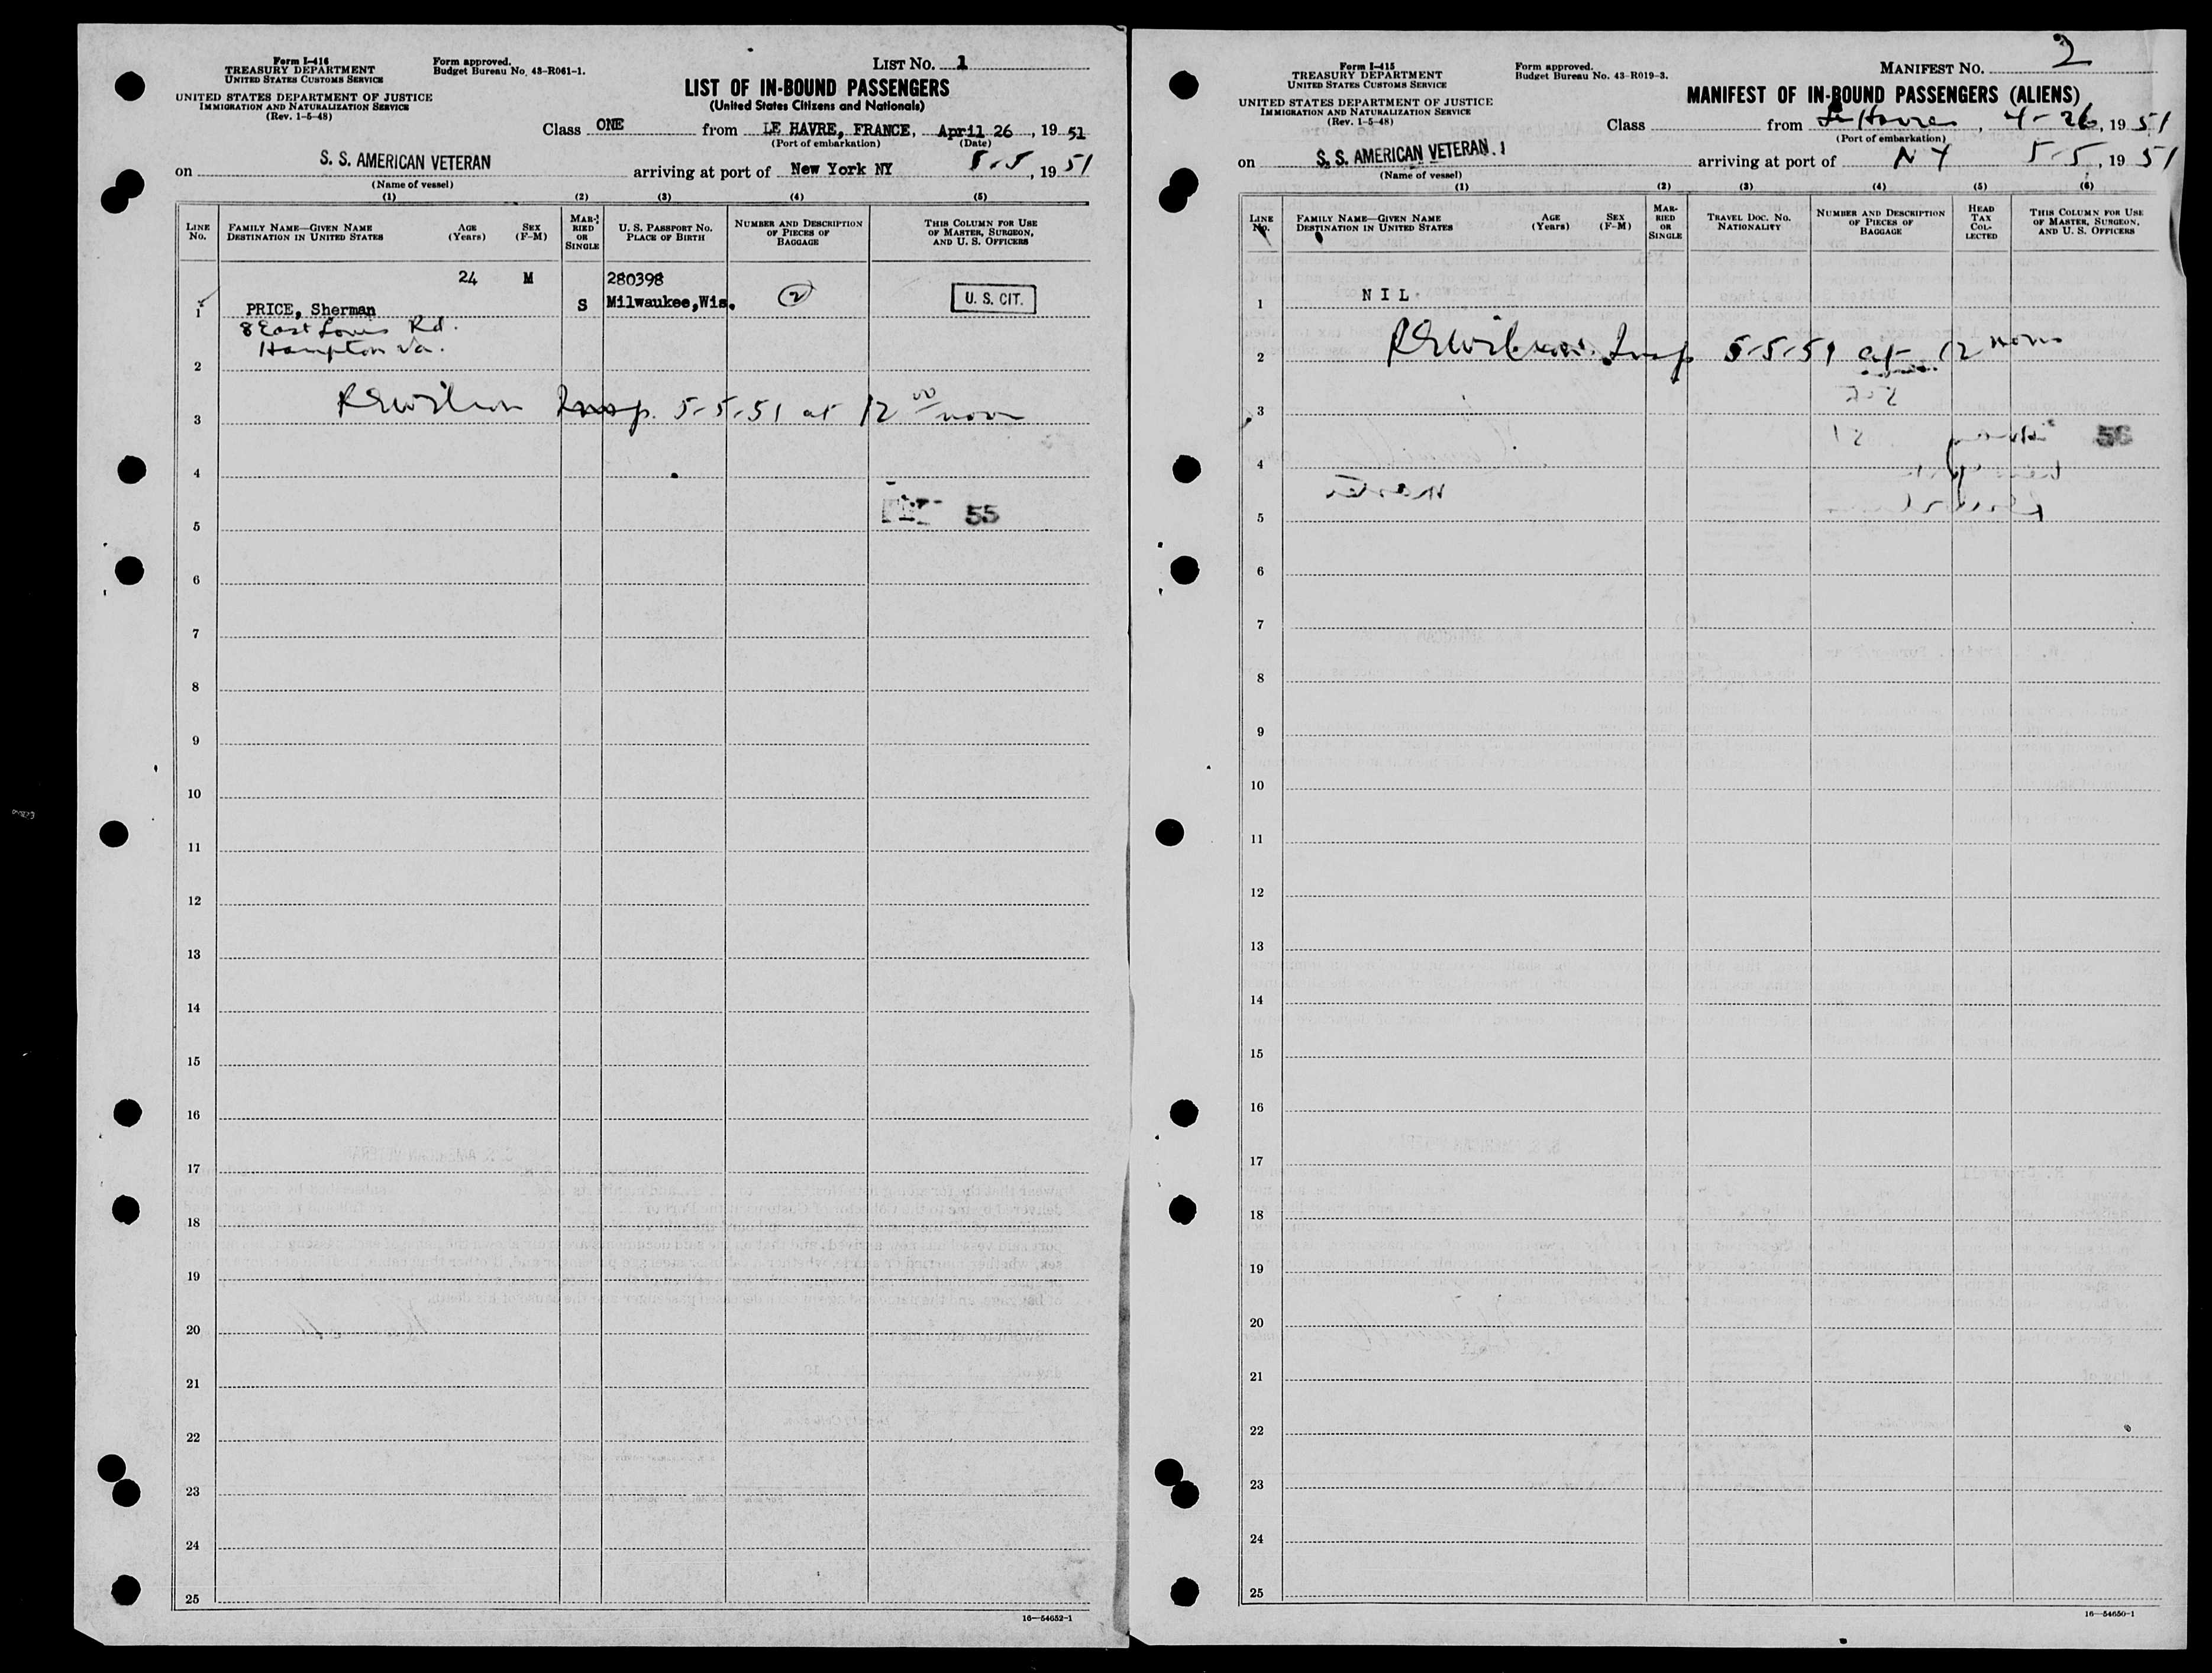 Form I-416
TREASURY DEPARTMENT
UNITED STATES CUSTOMS SERVICE
UNITED STATES DEPARTMENT OF JUSTICE
IMMIGRATION AND NATURALIZATION SERVICE
(Rev. 1-5-48)
Form approved.
Budget Bureau No. 43-R061-1.
LIST NO. 1
LIST OF IN-BOUND PASSENGERS
(United States Citizens and Nationals)
Class ONE from LE HAVRE, FRANCE, April 26, 1951
(Port of embarkation) (Date)
on S. S. AMERICAN VETERAN arriving at port of New York NY 5-5, 1951
(Name of vessel)
(1) (2) (3) (4) (5)
LINE No. FAMILY NAME—GIVEN NAME DESTINATION IN UNITED STATES AGE (Years) SEX (F-M) MARRIED OR SINGLE U. S. PASSPORT NO. PLACE OF BIRTH NUMBER AND DESCRIPTION OF PIECES OF BAGGAGE THIS COLUMN FOR USE OF MASTER, SURGEON, AND U. S. OFFICERS
24 M 280398
1 PRICE, Sherman S Milwaukee,Wis. 2 U. S. CIT.
8 East Lewis Rd.
Hampton Va.
2
R E Wilson Insp. 5-5-51 at 12 00 noon
3
4
55
5
6
7
8
9
10
11
12
13
14
15
16
17
18
19
20
21
22
23
24
25
16—54652-1
Form I-415
TREASURY DEPARTMENT
UNITED STATES CUSTOMS SERVICE
UNITED STATES DEPARTMENT OF JUSTICE
IMMIGRATION AND NATURALIZATION SERVICE
(Rev. 1-5-48)
Form approved.
Budget Bureau No. 43-R019-3.
MANIFEST NO. 2
MANIFEST OF IN-BOUND PASSENGERS (ALIENS)
Class from Le Havre, 4-26, 1951
(Port of embarkation)
on S. S. AMERICAN VETERAN. arriving at port of NY 5-5, 1951
(Name of vessel)
(1) (2) (3) (4) (5) (6)
LINE No. FAMILY NAME—GIVEN NAME DESTINATION IN UNITED STATES AGE (Years) SEX (F-M) MARRIED OR SINGLE TRAVEL DOC. NO. NATIONALITY NUMBER AND DESCRIPTION OF PIECES OF BAGGAGE HEAD TAX COLLECTED THIS COLUMN FOR USE OF MASTER, SURGEON, AND U. S. OFFICERS
1 NIL.
2 R E Wilson Insp 5-5-51 at 12 noon
3
56
4
5
6
7
8
9
10
11
12
13
14
15
16
17
18
19
20
21
22
23
24
25
16—54650-1